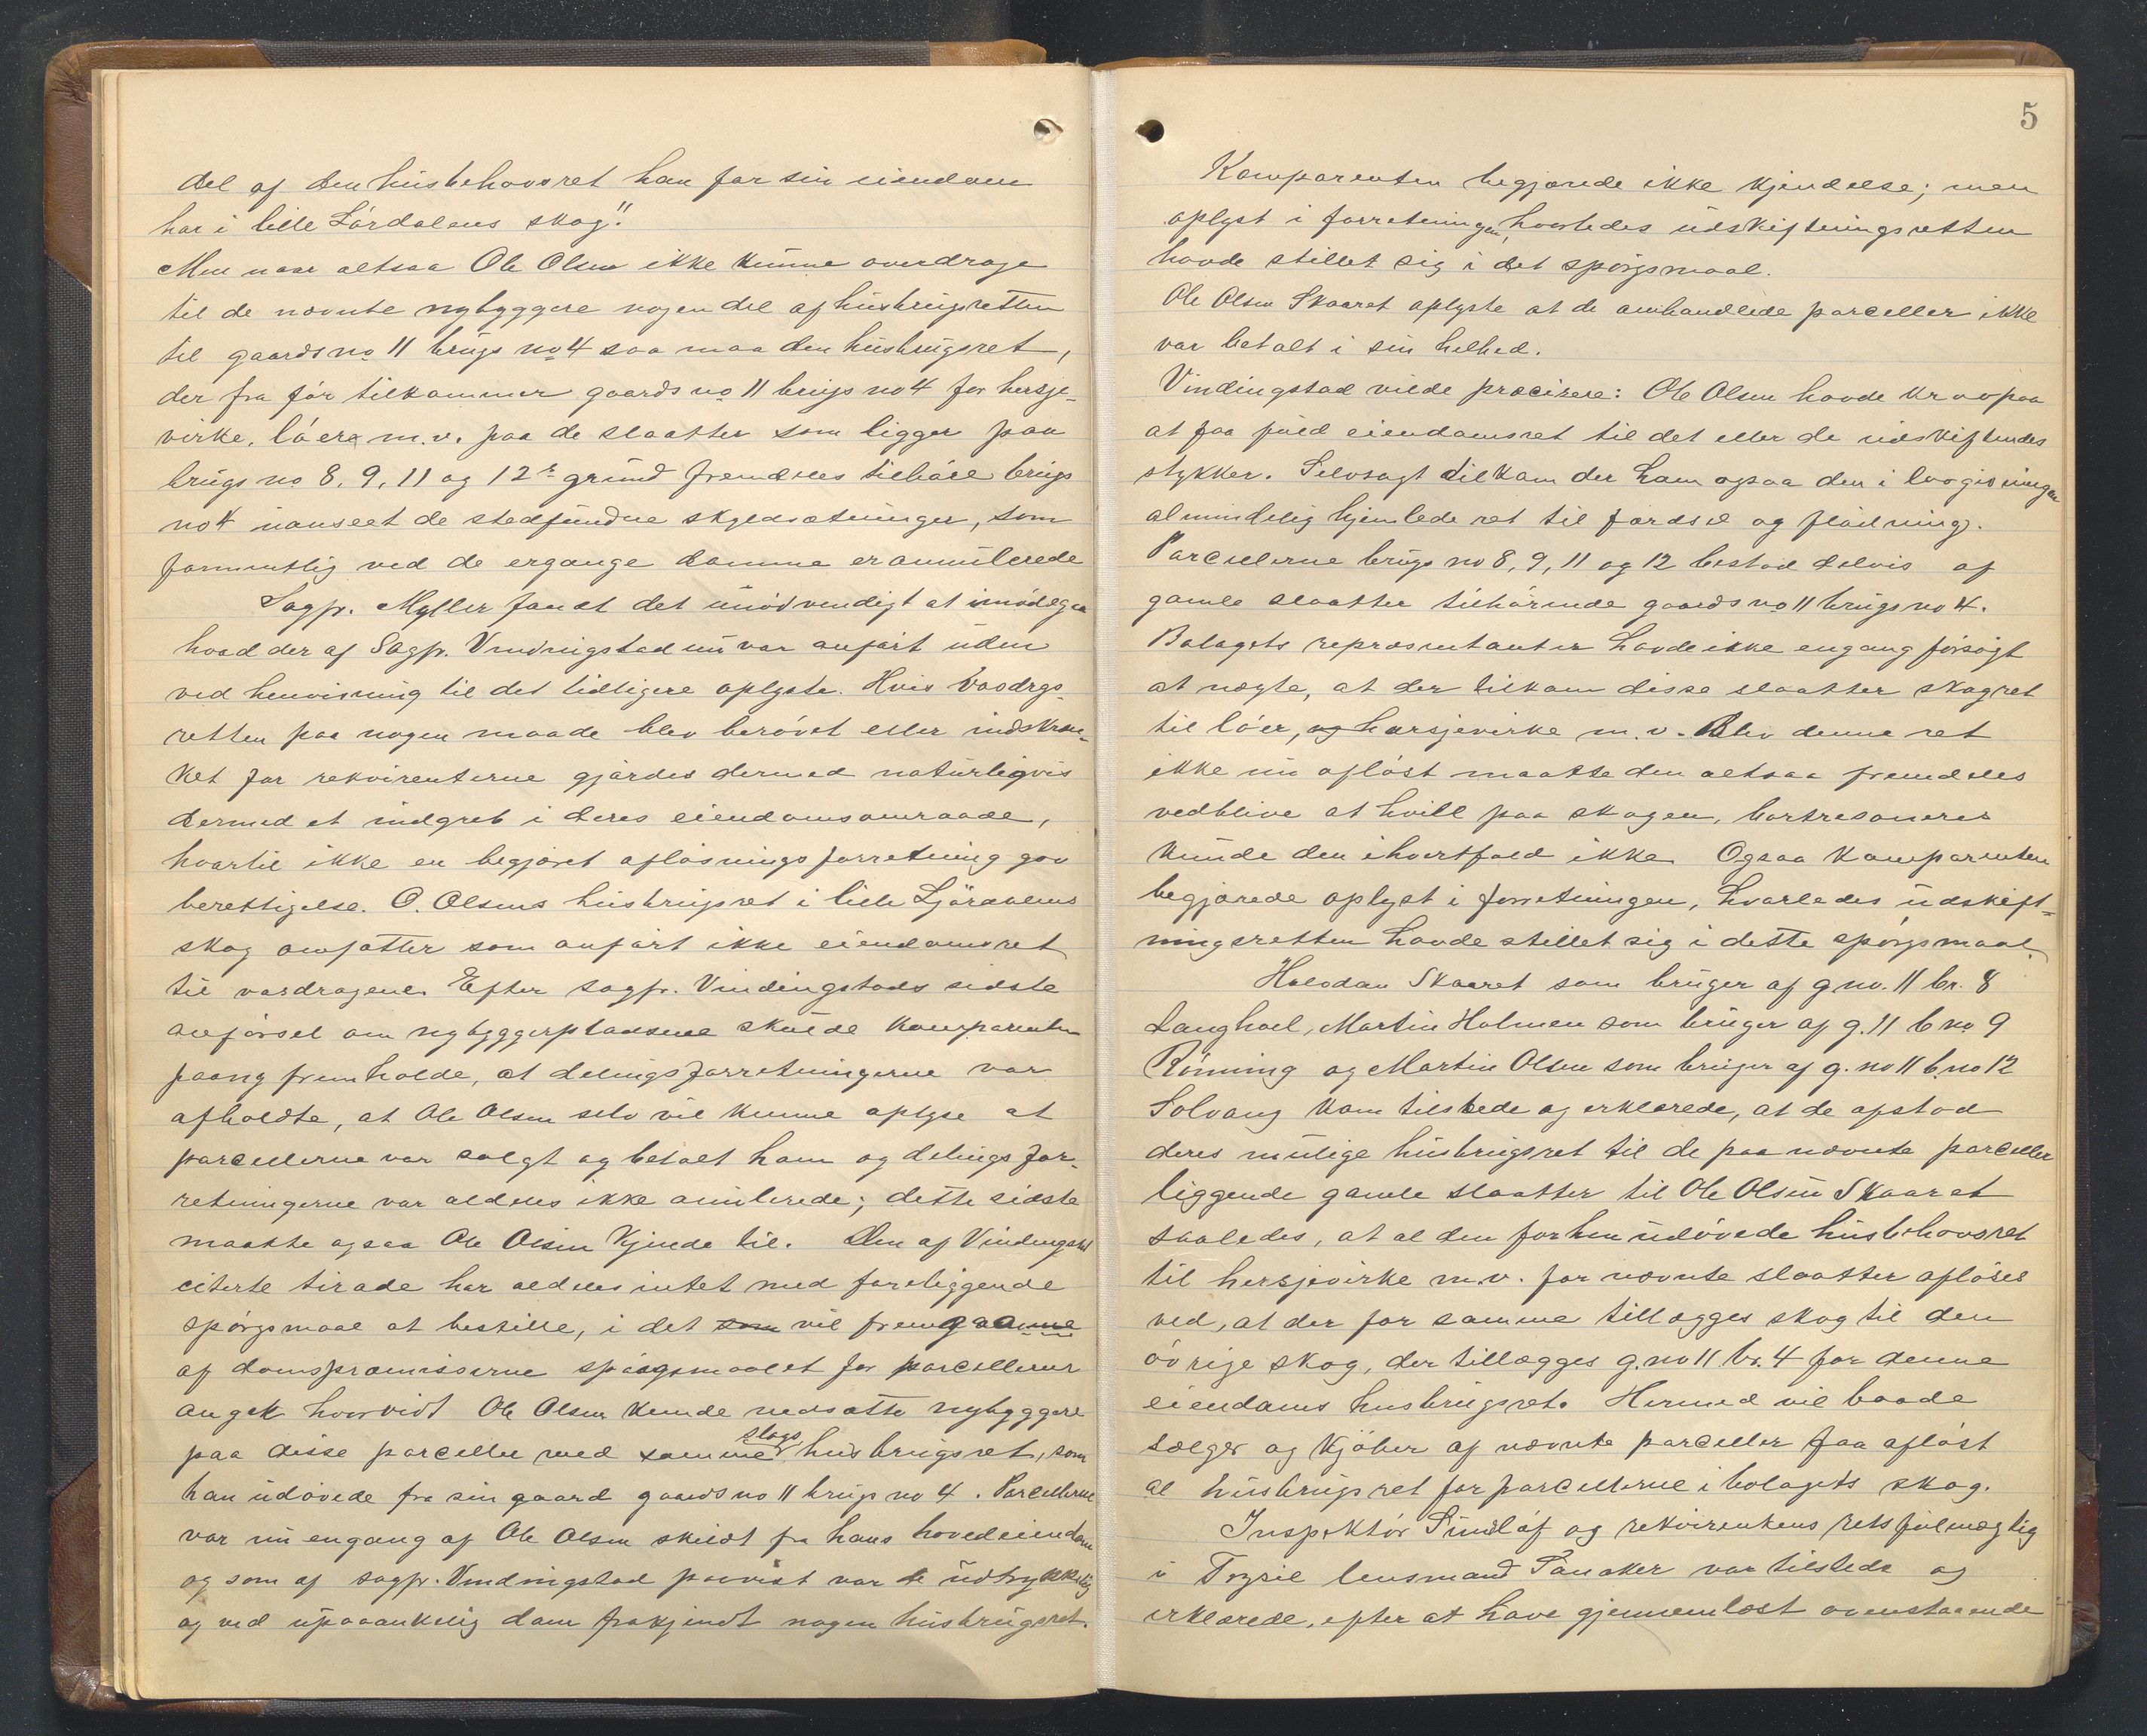 del af den husbehovsret han for sin eiendom
har i lille Lørdalens skog".
Men naar altsaa Ole Olsen ikke kunne overdrage
til de nævnte nybyggere nogen del af husbrugsretten
til gaardsno 11 brugs no 4 saa maa den husbrugsret,
der fra før tilkommer gaards no 11 brugs no 4 for hersje-
virke, løer m.v. paa de slaatter som ligger paa
brugs no 8, 9, 11 og 12s grund fremdeles tilhøre brugs
no 4 uanseet de stedfundne skyldsætninger, som
formentlig ved de ergange domme er annulerede
Sagfr. Myller fandt det unødvendigt at imødegaa
hvad der af Sagfr. Vindingstad nu var anført uden
ved henvisning til det tidligere oplyste. Hvis vasdrags-
retten paa nogen maade blev berøvet eller indskræn-
ket for rekvirenterne gjordes dermed naturligvis
dermed et indgreb i deres eiendomsomraade,
hvortil ikke en begjæret afløsningsforretning gav
berettigelse. O. Olsens husbrugsret i lille Ljørdalens
skog omfatter som anført ikke eiendomsret
til vasdragene. Efter sagfr. Vindingstads sidste
anførsel om nybyggerpladsene skulde komparenten
paany fremholde, at delingsforretningerne var
afholdte, at Ole Olsen selv vil kunne oplyse at
parcellerne var solgt og betalt ham og delingsfor-
retningerne var aldeles ikke anulerede; dette sidste
maatte ogsaa Ole Olsen kjende til. Den af Vindingstad
citerte tirade har aldeles intet med foreliggende
spørgsmaal at bestille, i det som vil fremgaa
af domspræmisserne spørgsmaalet for parcellerne
angik hvorvidt Ole Olsen kunde nedsætte nybyggere
paa disse parceller med samme slags husbrugsret, som
han udøvede fra sin gaard gaards no 11 brugs no 4. Parcellerne
var nu engang af Ole Olsen skildt fra hans hovedeiendom
og som af sagfr. Vindingstad paavist var de udtrykkelig
og ved upaaankelig dom frakjendt nogen husbrugsret.
5
Komparenten begjærede ikke kjendelse; men
oplyst i forretningen, hvorledes udskiftningsretten
havde stillet sig i det spørgsmaal.
Ole Olsen Skaaret oplyste at de omhandlede parceller ikke
var betalt i sin helhed.
Vindingstad vilde præcisere: Ole Olsen havde krav paa
at faa fuld eiendomsret til det eller de udskiftendes
stykker. Selvsagt tilkom der ham ogsaa den i lovgivningen
almindelig hjemlede ret til færdsel og flødning.
Parcellerne brugs no 8, 9, 11 og 12 bestod delvis af
gamle slaatter tilhørende gaards no 11 brugs no 4.
Bolagets repræsentanter havde ikke engang forsøgt
at nægte, at der tilkom disse slaatter skogret
til løer, og hersjevirke m.v. Blev denne ret
ikke nu afløst maatte den altsaa fremdeles
vedblive at hvile paa skogen, bortresoneres
kunde den ihvertfald ikke. Ogsaa komparenten
begjærede oplyst i forretningen, hvorledes udskift-
ningsretten havde stillet sig i dette spørgsmaal.
Halvdan Skaaret som bruger af gno. 11 br. 8
Langhoel, Martin Holmen som bruger af g. 11 b no 9
Rønning og Martin Olsen som bruger af g. no 11 b no 12
Solvang kom tilstede og erklærede, at de afstod
deres mulige husbrugsret til de paa nævnte parceller
liggende gamle slaatter til Ole Olsen Skaaret
saaledes, at al den forhen udøvede husbehovsret
til hersjevirke m.v. for nævnte slaatter afløses
ved, at der for samme tillægges skog til den
øvrige skog, der tillægges g.no 11 br. 4 for denne
eiendoms husbrugsret. Hermed vil baade
sælger og kjøber af nævnte parceller faa afløst
al husbrugsret for parcellerne i bolagets skog.
Inspektør Sundløf og rekvirentens retsfuldmægtig
i Trysil lensmand Tanaker var tilstede og
erklærede, efter at have gjennemlæst ovenstaaende